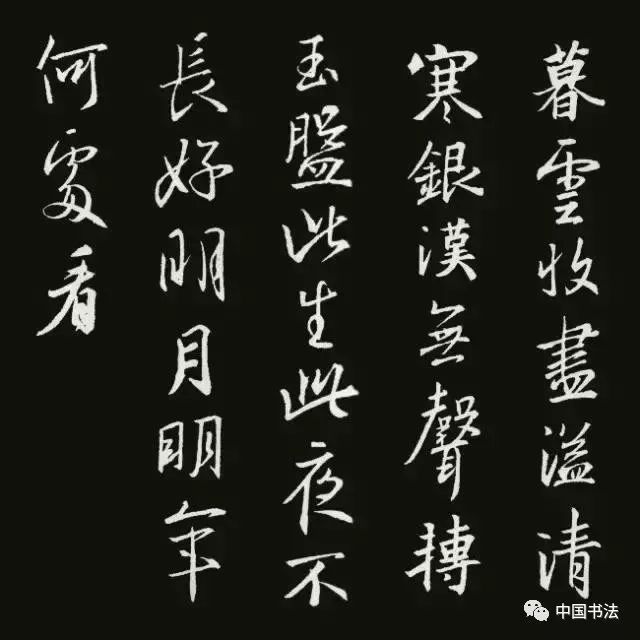 暮雲收盡溢清
寒銀漢無聲摶
玉盤此生此夜不
長好明月明年
何處看
中国书法